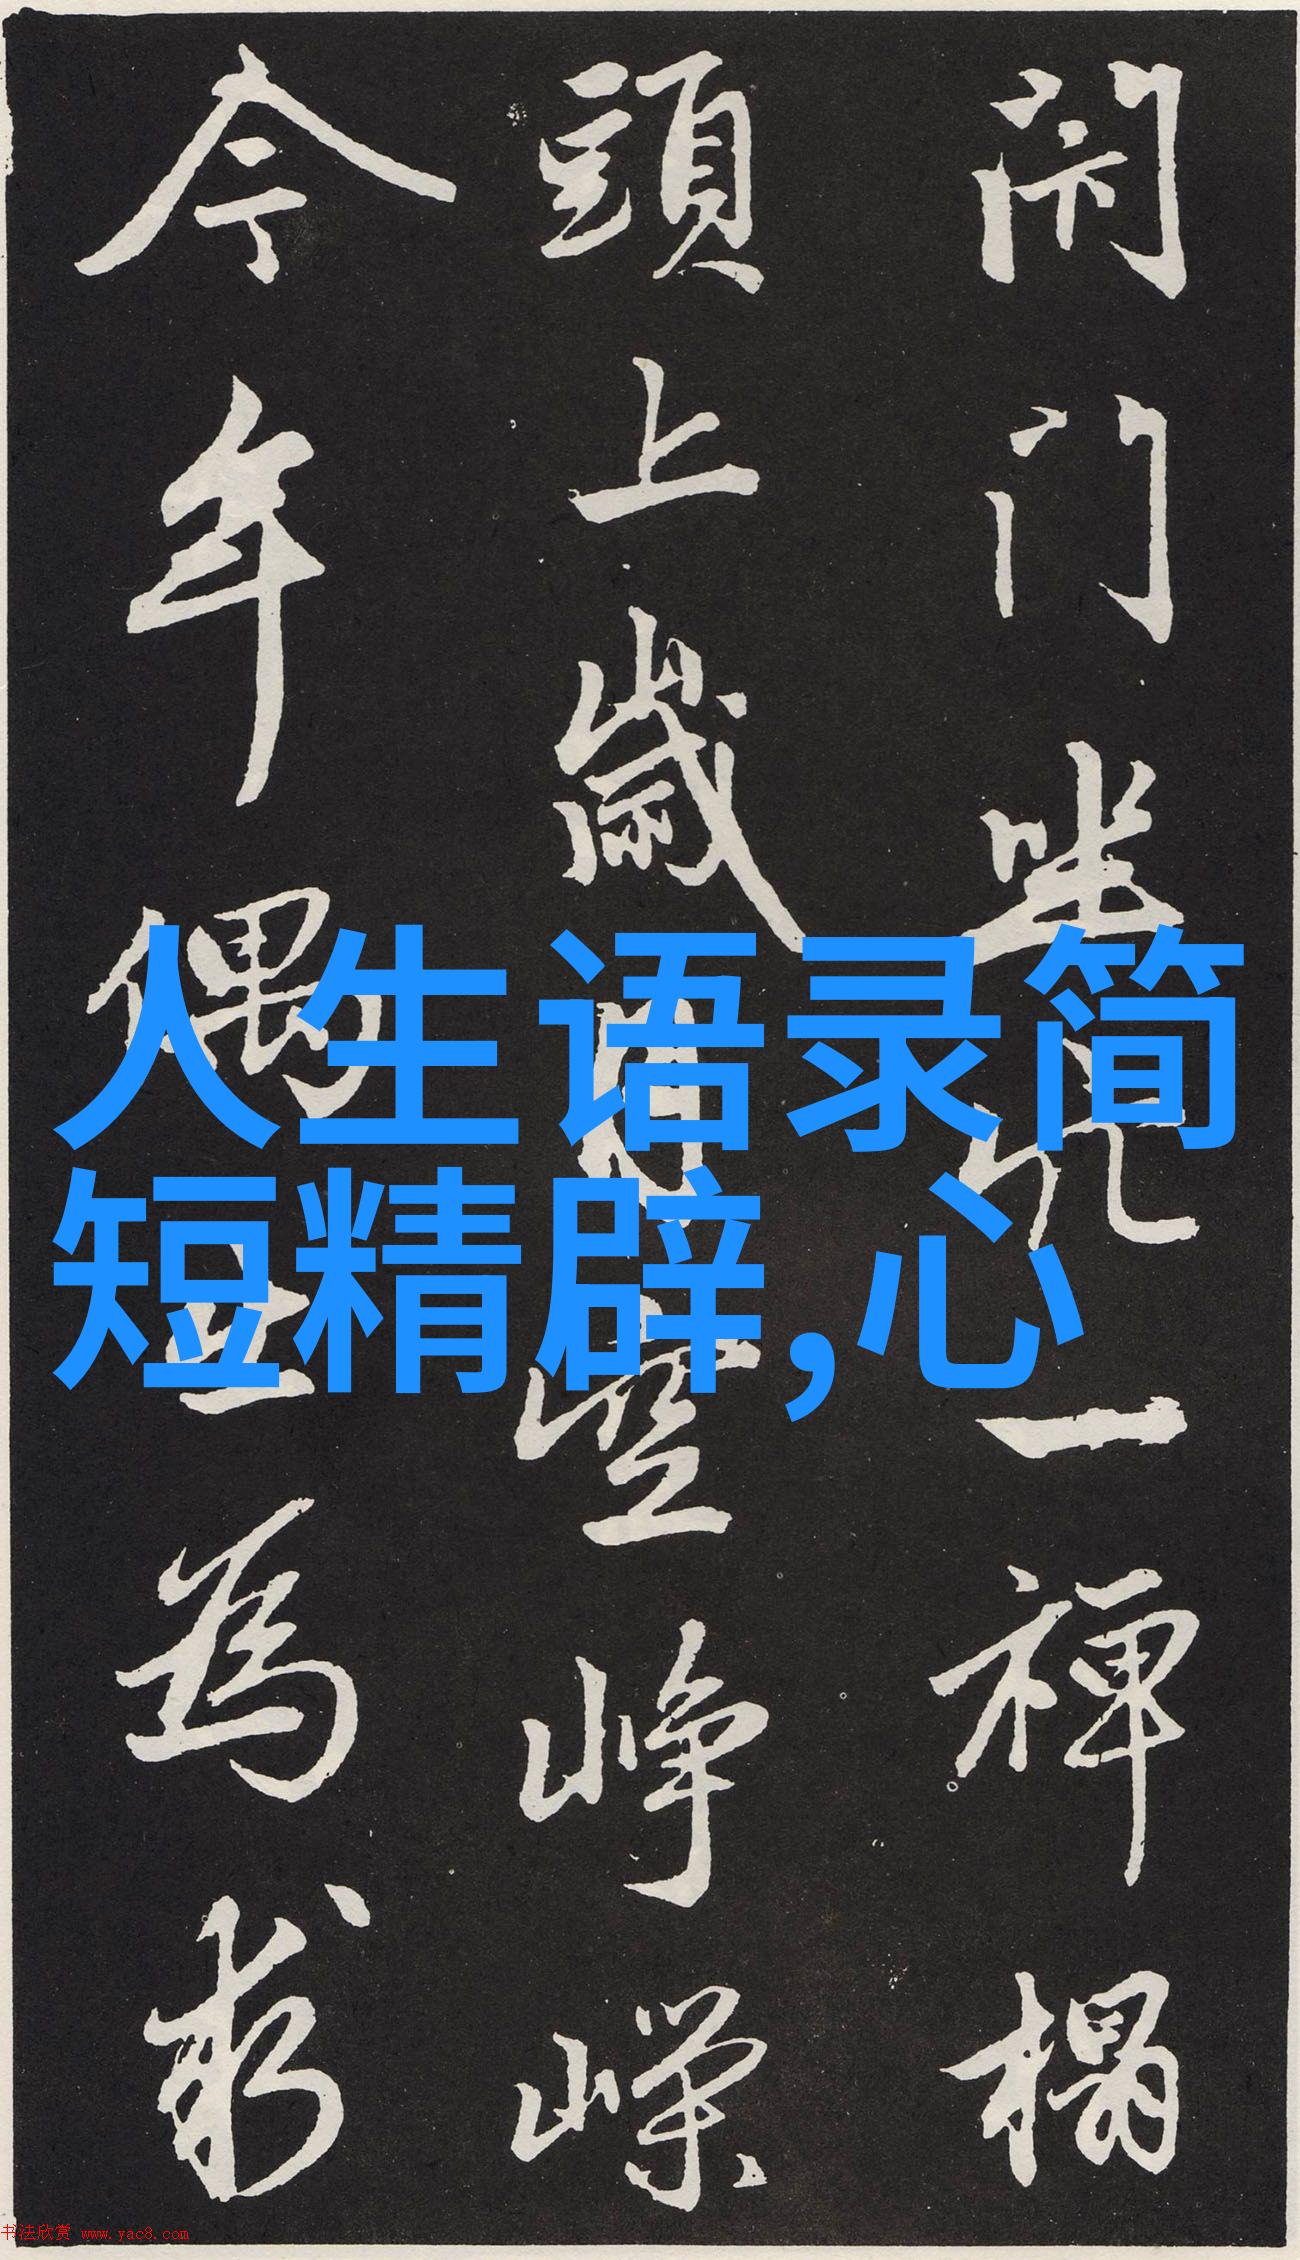 闭门坐穴一禅榻
頭上歲月空崢嶸
今年偶出為求
人生语录简
短精辟,心
书法欣赏 www.yac8.com